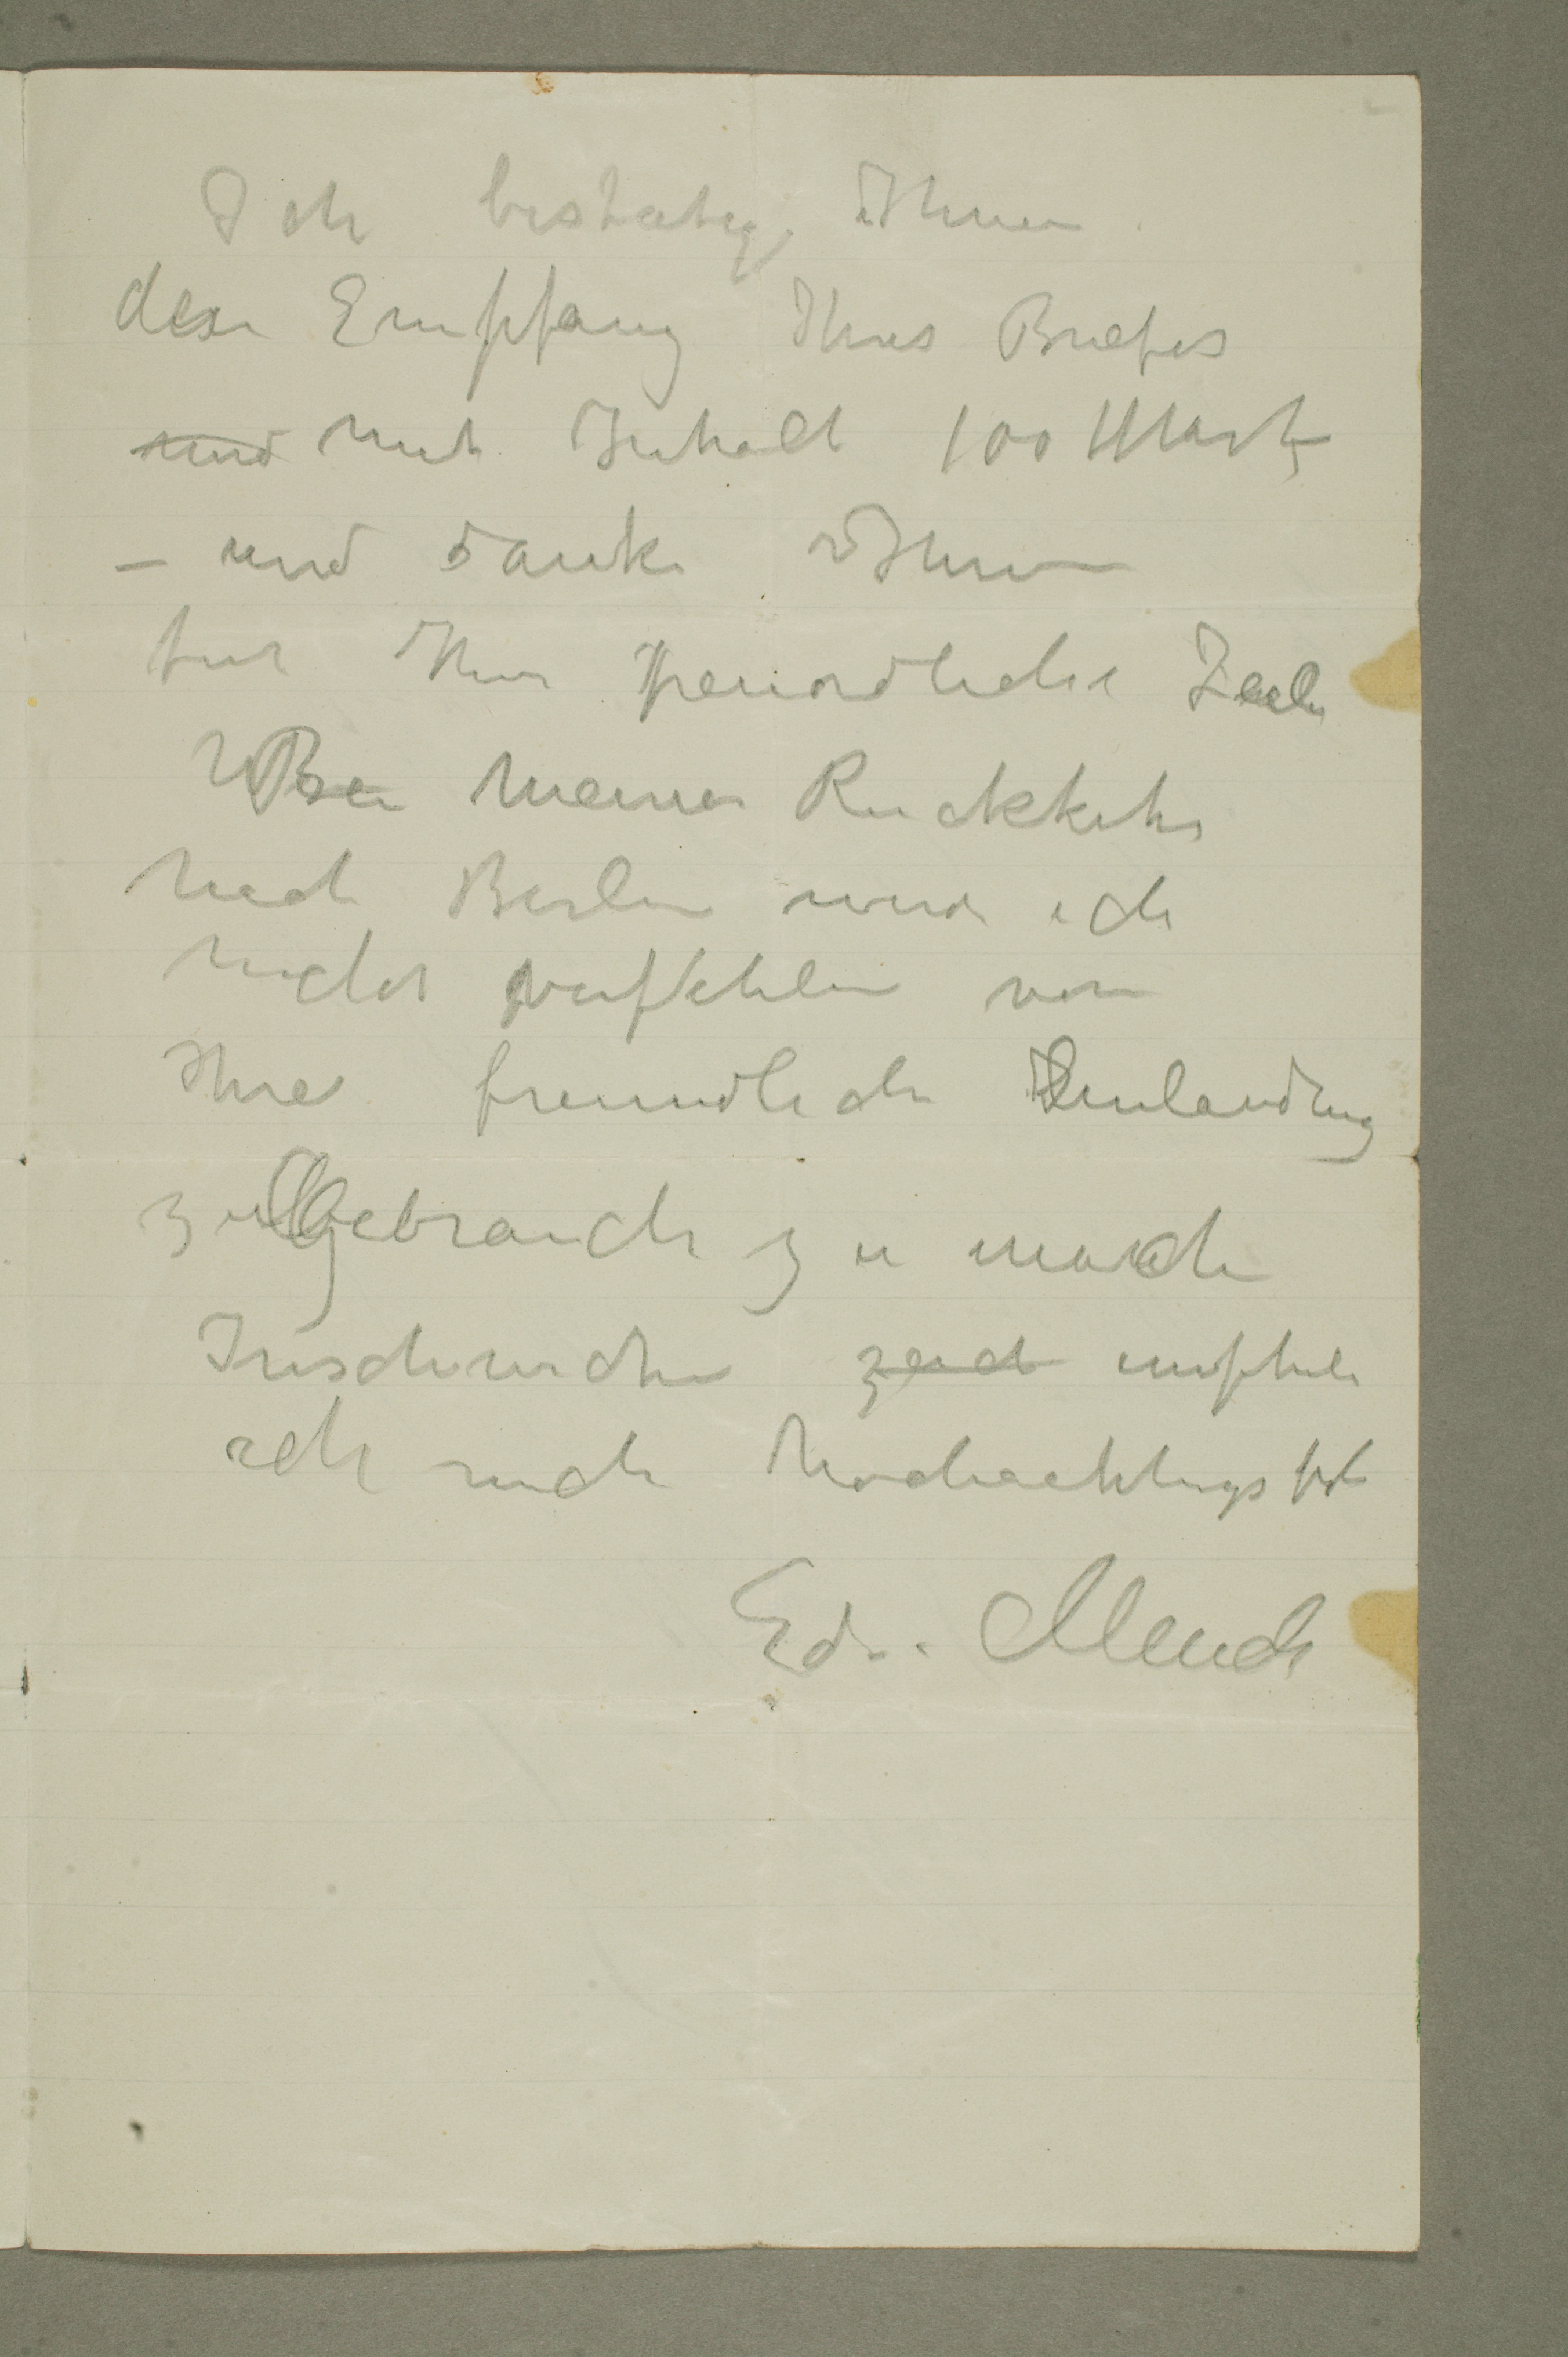 Ich bestatige Ihnen
den Empfang Ihres Briefes
und mit Inhalt 100 Mark
– und danke Ihnen
fur Ihre freundliche Zeile
Bei meiner Ruckkehr
nach Berlin werde ich
nicht verfehlen von
Ihre freundliche Einlandung
zu Gebrauch zu machen
Inschwischen emphele
ich mich hochachtungsfol
Edv. Munch